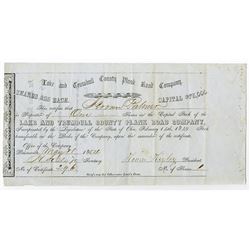 Lake and Trumbull County Plank Road Company.
SHARES $25 EACH. CAPITAL $75,000
This certifies that Hiram Palmer
is Proprietor of One Share in the Capital Stock of the
LAKE AND TRUMBULL COUNTY PLANK ROAD COMPANY,
Incorporated by the Legislature of the State of Ohio, February 1849. Stock
transferable on the Books of the Company, upon the surrender of this certificate.
Office of the Company
Painesville, May 1850
Secretary President
No. of Certificate 296 No. of Shares 1